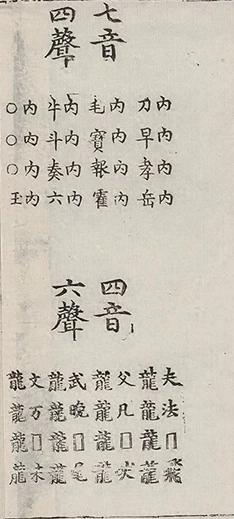 七音
四聲
内内内内
刀早孝岳
内内内内
毛寶報霍
内内内内
牛斗奏六
内内内内
○○○玉
四音
六聲
夫法□飛
龍龍龍龍
父凡□吠
龍龍龍龍
武晚□尾
龍龍龍龍
文万□未
龍龍龍龍